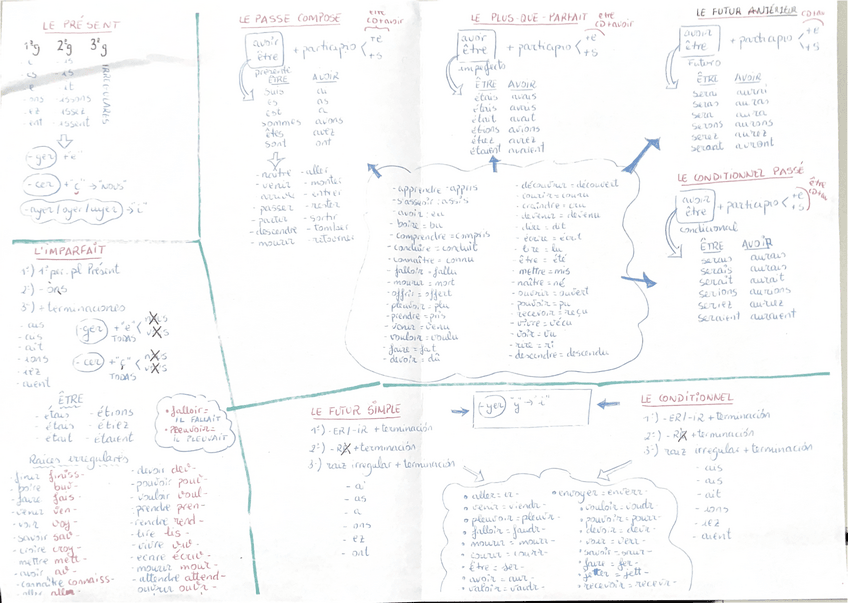 LE PRÉSENT
1ºg 2ºg 3ºg
- is
- es - is
- e - it
- ons - issons
- ez - issez
- ent - issent
IRREGULARES
-yer + "e"
-cer + "ç" → "NOUS"
-ayer/oyer/uyer → "i"
LE PASSÉ COMPOSÉ
être
CD+avoir
avoir
être
+ participio < +e
+s
présente
ÊTRE AVOIR
suis ai
es as
est a
sommes avons
êtes avez
sont ont
- naître - aller
- venir - monter
- arriver - entrer
- passer - rester
- partir - sortir
- descendre - tomber
- mourir - retourner
LE PLUS-QUE-PARFAIT
être
CD+avoir
avoir
être
+ participio < +e
+s
imperfecto
ÊTRE AVOIR
étais avais
étais avais
était avait
étions avions
étiez aviez
étaient avaient
LE FUTUR ANTÉRIEUR
avoir
être
+ participio < +e
+s
Futuro
ÊTRE AVOIR
serai aurai
seras auras
sera aura
serons aurons
serez aurez
seront auront
LE CONDITIONNEL PASSÉ
avoir
être
+ participio < +e
+s
être
condicional
ÊTRE AVOIR
serais aurais
serais aurais
serait aurait
serions aurions
seriez auriez
seraient auraient
- apprendre = appris
- s'assoir = assis
- avoir = eu
- boire = bu
- comprendre = compris
- conduire = conduit
- connaître = connu
- falloir = fallu
- mourir = mort
- offrir = offert
- pleuvoir = plu
- prendre = pris
- venir = venu
- vouloir = voulu
- faire = fait
- devoir = dû
- découvrir = découvert
- courir = couru
- devenir = devenu
- dire = dit
- écrire = écrit
- lire = lu
- être = été
- mettre = mis
- naître = né
- ouvrir = ouvert
- pouvoir = pu
- recevoir = reçu
- vivre = vécu
- voir = vu
- rire = ri
- descendre = descendu
L'IMPARFAIT
1º) 1ª per. pl Présent
2º) - ons
3º) + terminaciones
- ais
- ais
- ait
- ions
- iez
- aient
-ger + "e" < NOUS
VOUS
TODAS
-cer + "ç" < NOUS
VOUS
TODAS
ÊTRE
- étais - étions
- étais - étiez
- était - étaient
• falloir =
IL FALLAIT
• pleuvoir =
IL PLEUVAIT
Raíces irregulares
- finir finiss-
- boire buv-
- faire fais-
- venir ven-
- voir voy-
- savoir sav-
- croire croy-
- mettre mett-
- avoir av-
- connaître connaiss-
- aller all-
- devoir dev-
- pouvoir pouv-
- vouloir voul-
- prendre pren-
- rendre rend-
- lire lis-
- vivre viv-
- écrire écriv-
- mourir mour-
- attendre attend-
- ouvrir ouvr-
LE FUTUR SIMPLE
1º) -ER/-IR + terminación
2º) -RE + terminación
3º) raiz irregular + terminación
- ai
- as
- a
- ons
- ez
- ont
-yer "y" → "i"
LE CONDITIONNEL
1º) -ER/-IR + terminación
2º) -RE + terminación
3º) raiz irregular + terminación
- ais
- ais
- ait
- ions
- iez
- aient
• aller = ir-
• venir = viendr-
• pleuvoir = pleuvr-
• falloir = faudr-
• mourir = mourr-
• courir = courr-
• être = ser-
• avoir = aur-
• valoir = vaudr-
• envoyer = enverr-
• vouloir = voudr-
• pouvoir = pourr-
• devoir = devr-
• voir = verr-
• savoir = saur-
• faire = fer-
• jeter = jett-
• recevoir = recevr-